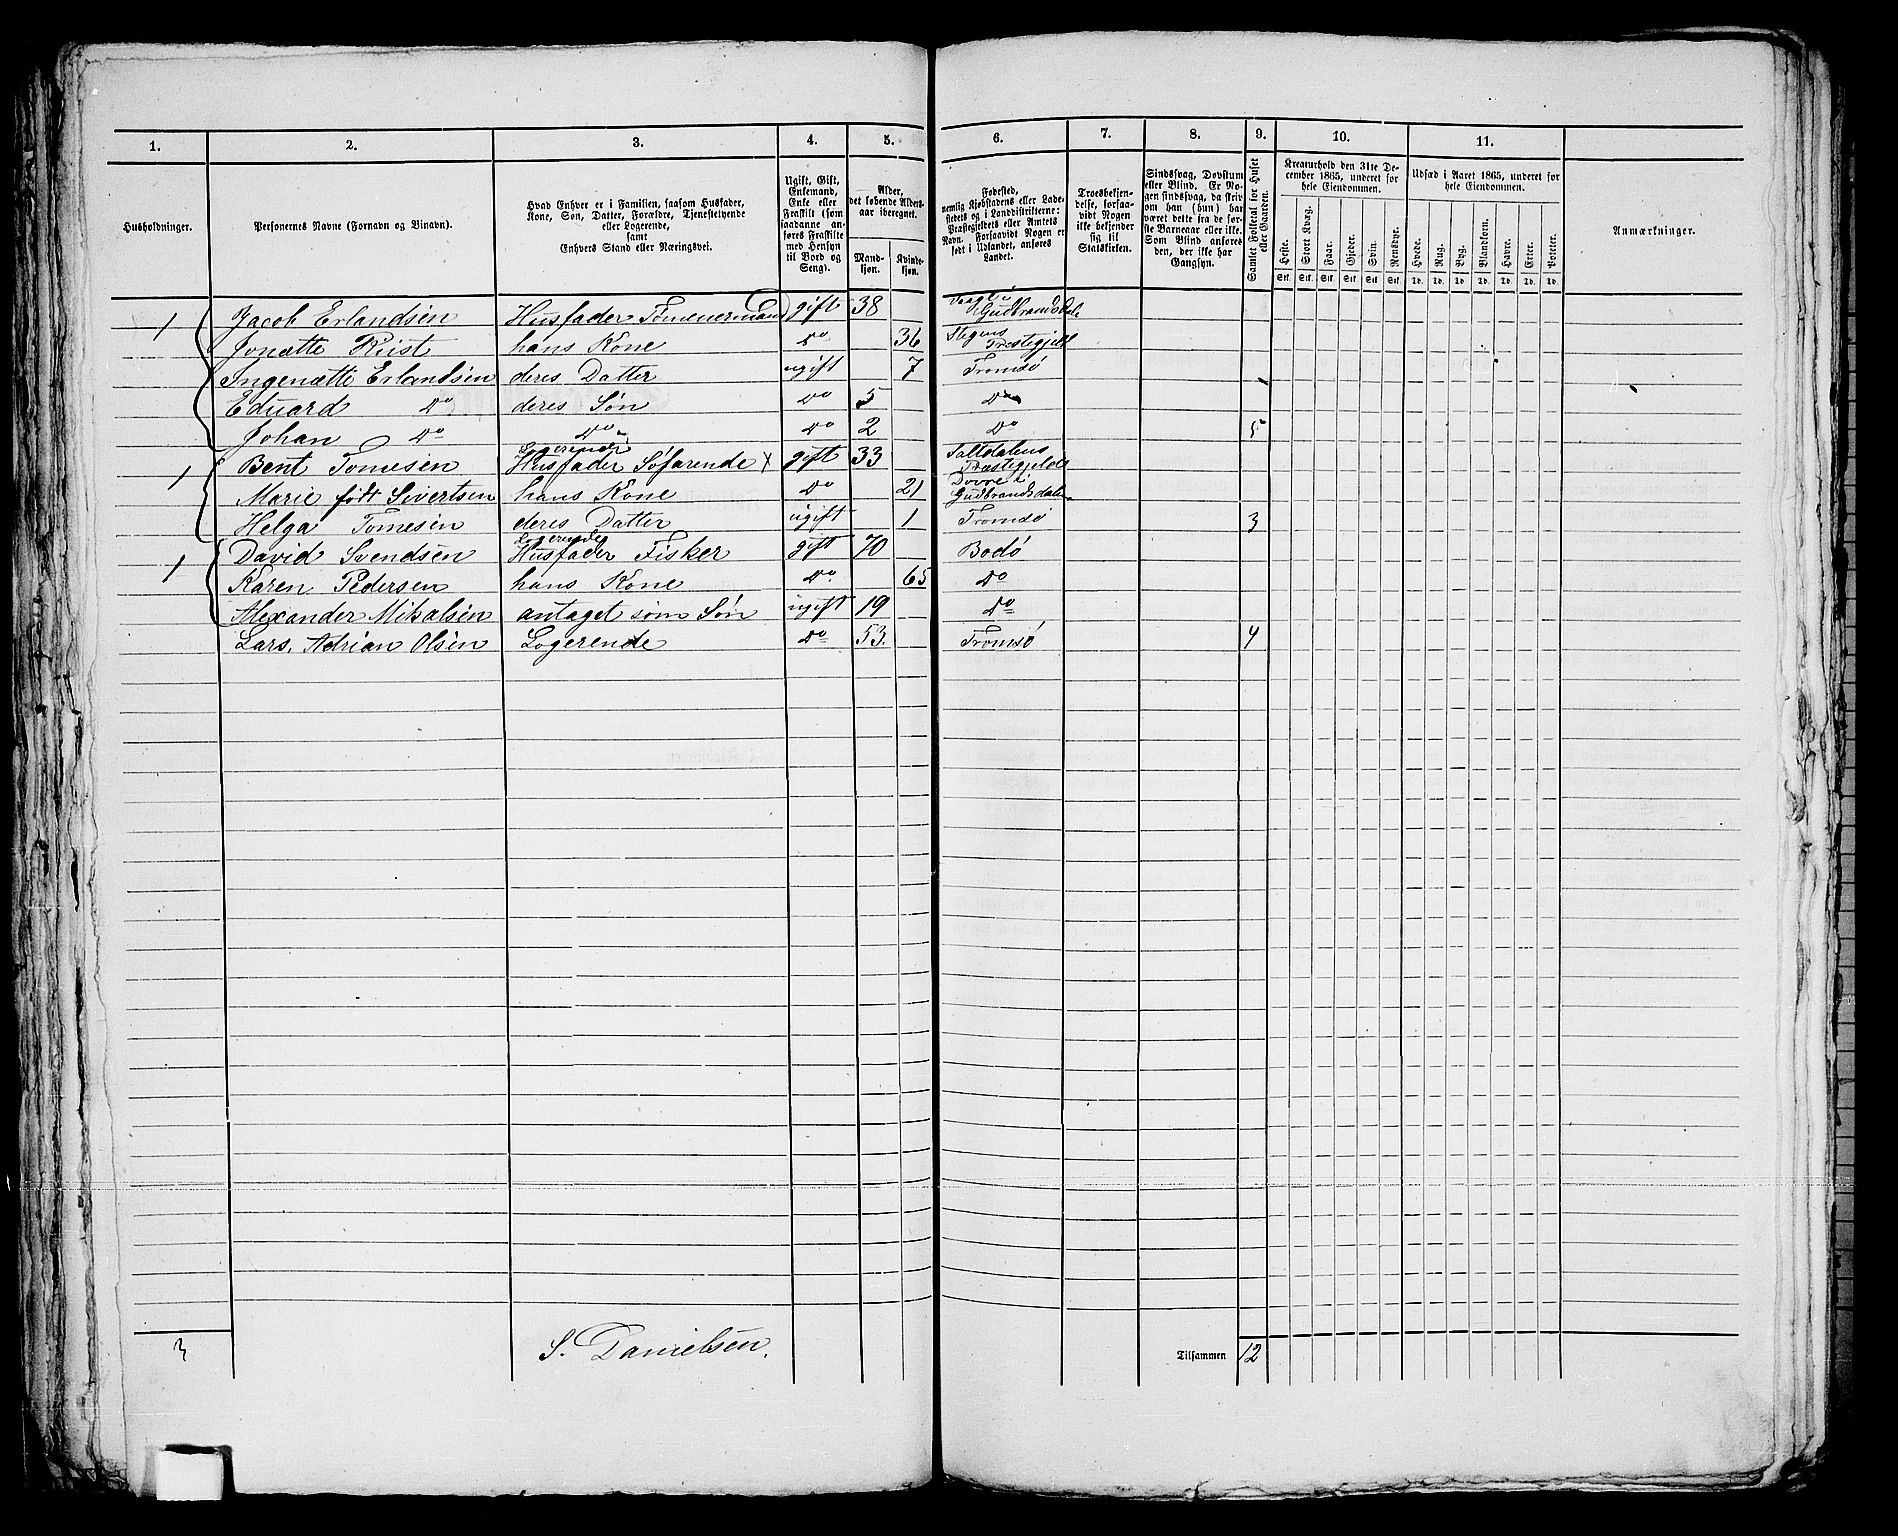 1. 2. 3. 4. 5. 6. 7. 8. 9. 10. 11.
Husholdninger.
Personernes Navne (Fornavn og Binavn).
Hvad Enhver er i Familien, saasom Husfader,
Kone, Søn, Datter, Forældre, Tjenestetyende
eller Logerende,
samt
Enhvers Stand eller Næringsvei.
Ugift, Gift,
Enkemand,
Enke eller
Fraskilt (som
saadanne an-
føres Fraskilte
med Hensyn
til Bord og
Seng).
Alder,
det løbende Alders-
aar iberegnet.
Mand-
kjøn.
Kvinde-
kjøn.
Fødested,
nemlig Kjøbstadens eller Lade-
stedets og i Landdistrikterne:
Præstegjeldets eller Amtets
Navn. Forsaavidt Nogen er
født i Udlandet, anføres
Landet.
Troesbekjen-
delse, forsaa-
vidt Nogen
ikke bekjender
sig til
Statskirken.
Sindssvag, Døvstum
eller Blind. Er No-
gen sindssvag, da skriv
om han (hun) har
været dette fra de før-
ste Barneaar eller ikke.
Som Blind anføres
den, der ikke har
Gangsyn.
Samlet Folketal for Huset
eller Gaarden.
Kreaturhold den 31te De-
cember 1865, underet for
hele Eiendommen.
Heste. Stort Kvæg. Faar. Gjeder. Svin. Rensdyr.
Stk. Stk. Stk. Stk. Stk. Stk.
Udsæd i Aaret 1865, underet for
hele Eiendommen.
Hvede. Rug. Byg. Blandkorn. Havre. Erter. Poteter.
Td. Td. Td. Td. Td. Td. Td.
Anmærkninger.
1 Jacob Erlandsen Husfader Tømmermand gift 38 Vaage i Gudbrandsdale
Jonætte Kiist hans Kone Do 36 Stegens Præstegjeld
Ingenætte Erlandsen deres Datter ugift 7 Tromsø
Eduard Do deres Søn Do 5 Do
Johan Do Do Do 2 Do 5
Logerende
1 Bent Tomesen Husfader Søfarende X gift 33 Saltdalens Præstegjelds
Marie født Sivertsen hans Kone Do 21 Dovre i Gudbrandsdalen
Helga Tomesen deres Datter ugift 1 Tromsø 3
Logerende
1 David Svendsen Husfader Fisker gift 70 Bodø
Karen Pedersen hans Kone Do 65 Do
Alexander Mikalsen antaget som Søn ugift 19 Do
Lars. Adrian Olsen Logerende Do 53. Tromsø 4
3 S. Danielsen. Tilsammen 12